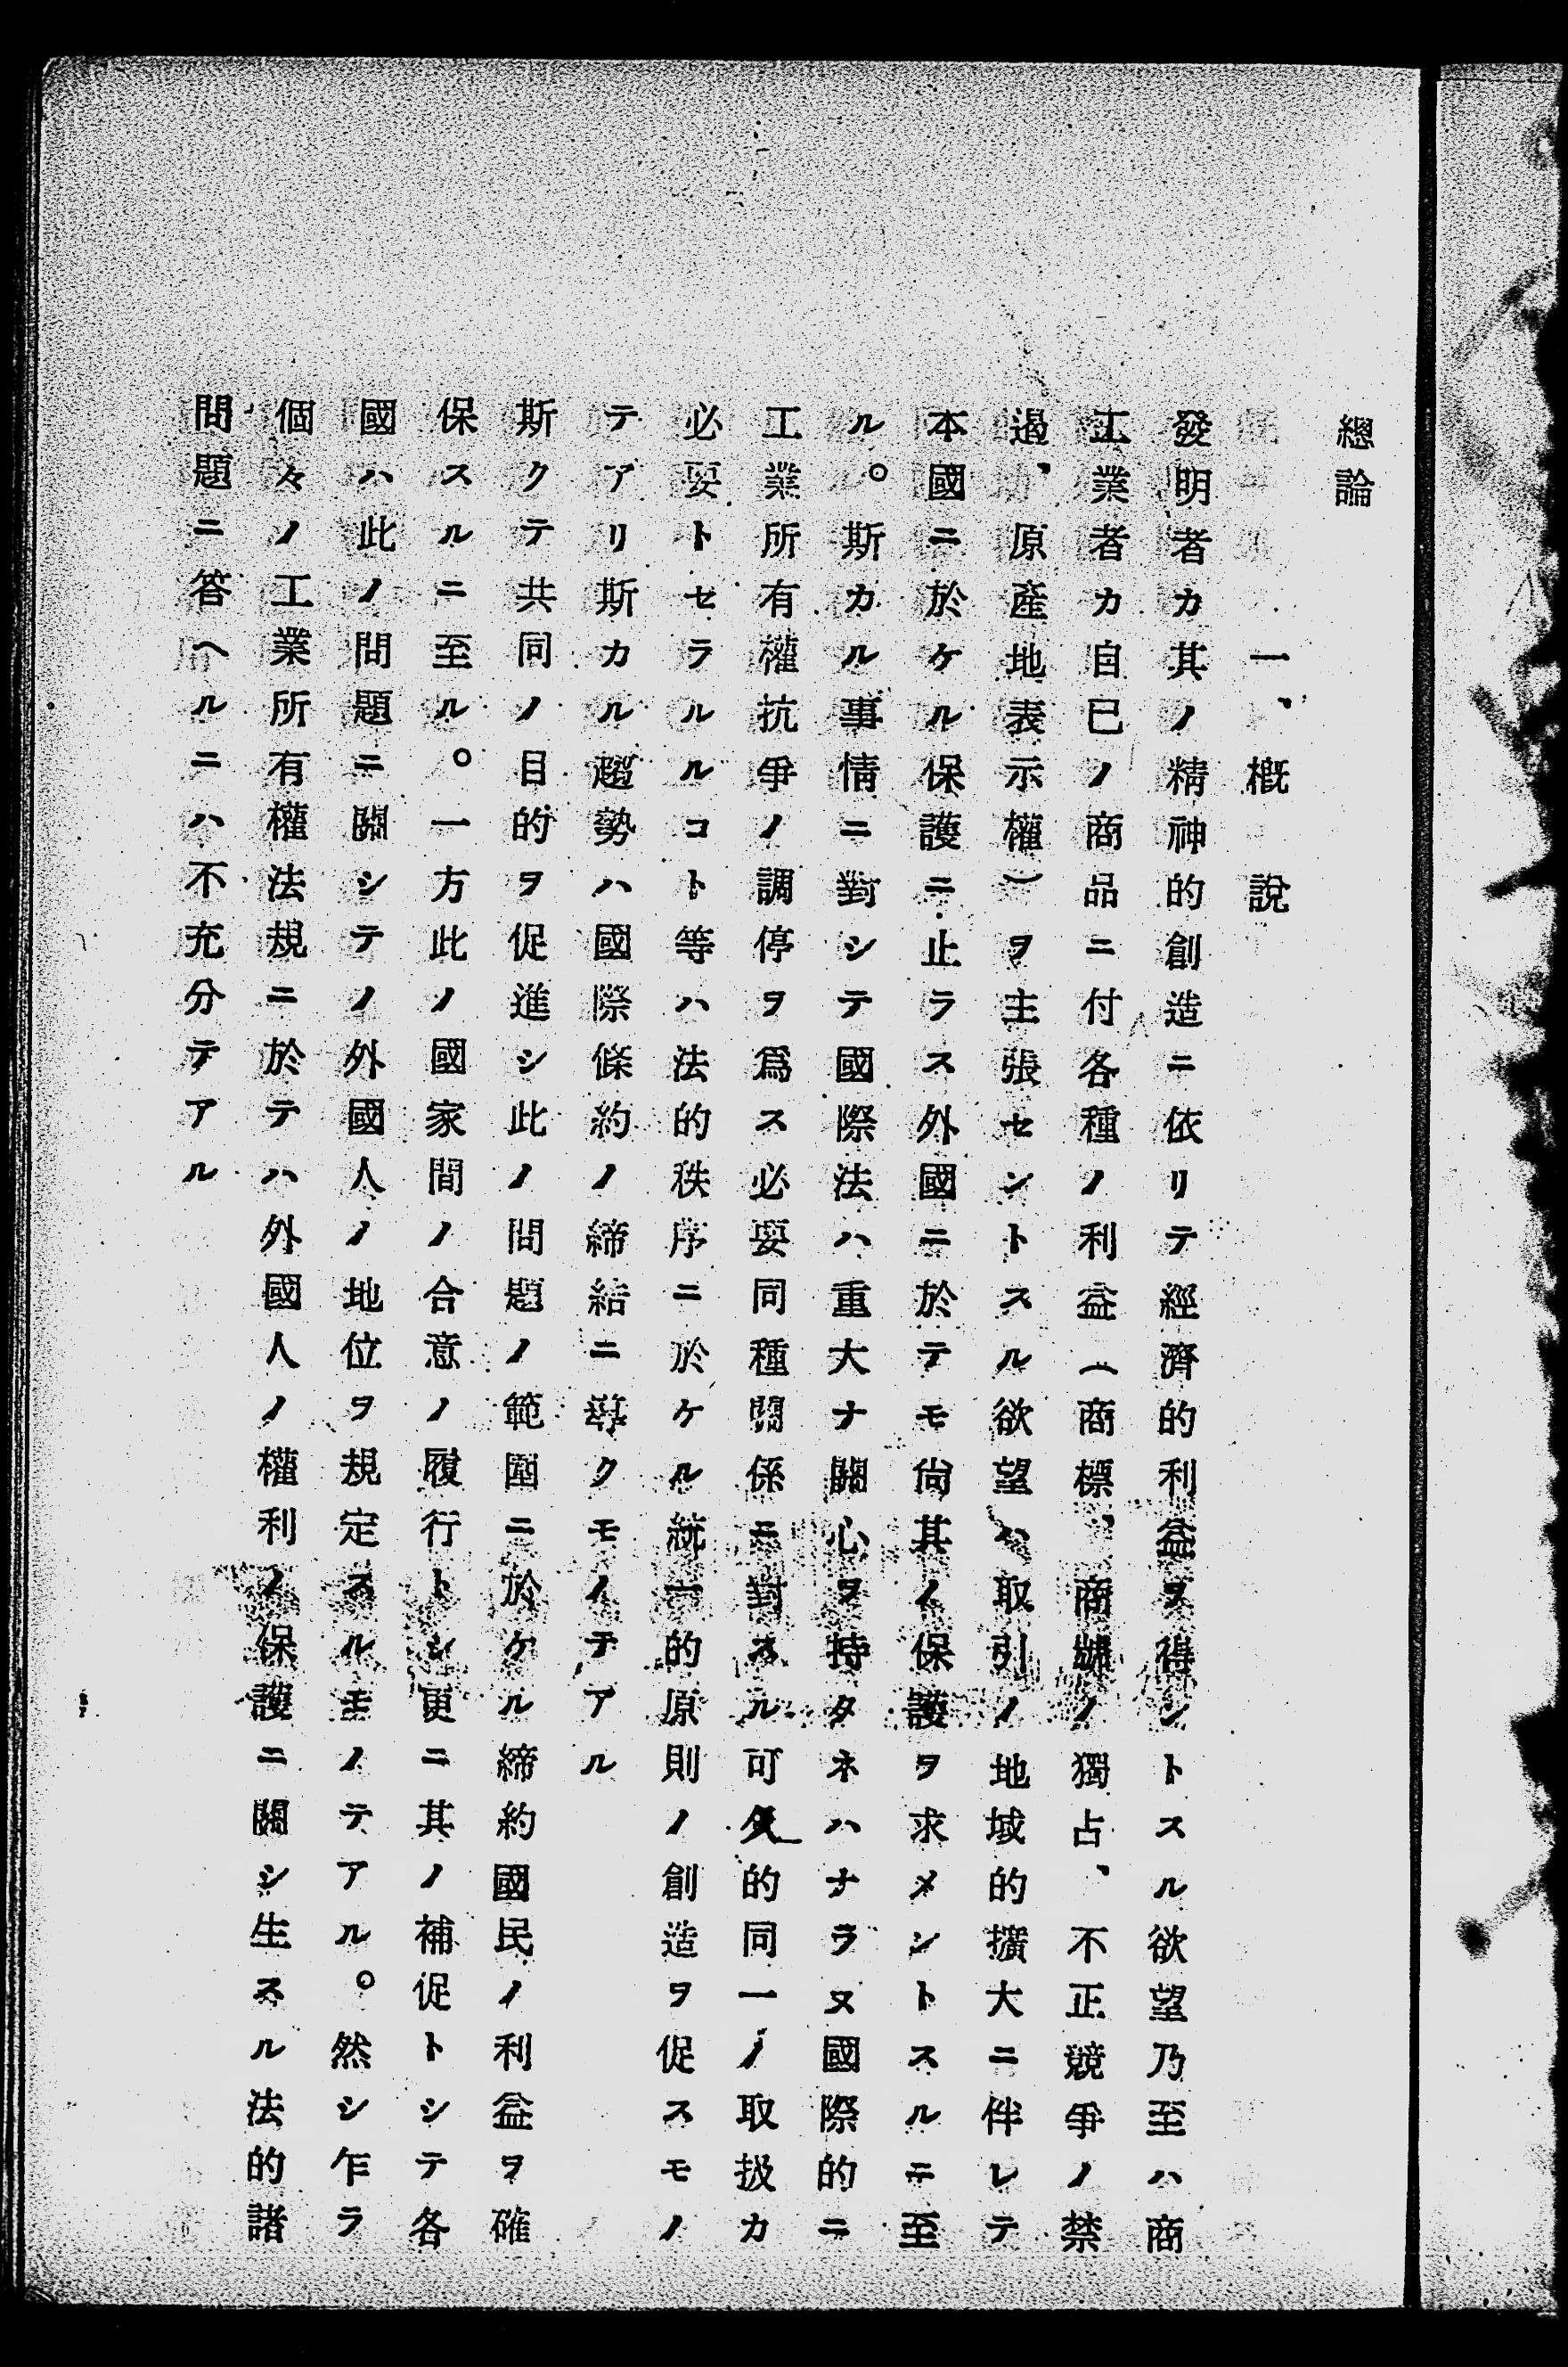 總論
一、概說
發明者カ其ノ精神的創造ニ依リテ經濟的利益ヲ得ントスル欲望乃至ハ商
工業者カ自已ノ商品ニ付各種ノ利益（商標、商號ノ獨占、不正競爭ノ禁
遏、原產地表示權）ヲ主張セントスル欲望ハ取引ノ地域的擴大ニ伴レテ
本國ニ於ケル保護ニ止ラス外國ニ於テモ尙其ノ保護ヲ求メントスルニ至
ル。斯カル事情ニ對シテ國際法ハ重大ナ關心ヲ持タネハナラヌ國際的ニ
工業所有權抗爭ノ調停ヲ爲ス必要同種關係ニ對スル可及的同一ノ取扱カ
必要トセラルルコト等ハ法的秩序ニ於ケル統一的原則ノ創造ヲ促スモノ
テアリ斯カル趨勢ハ國際條約ノ締結ニ導クモノテアル
斯クテ共同ノ目的ヲ促進シ此ノ問題ノ範圍ニ於ケル締約國民ノ利益ヲ確
保スルニ至ル。一方此ノ國家間ノ合意ノ履行トシ更ニ其ノ補促トシテ各
國ハ此ノ問題ニ關シテノ外國人ノ地位ヲ規定スルモノテアル。然シ乍ラ
個々ノ工業所有權法規ニ於テハ外國人ノ權利ノ保護ニ關シ生スル法的諸
問題ニ答ヘルニハ不充分テアル